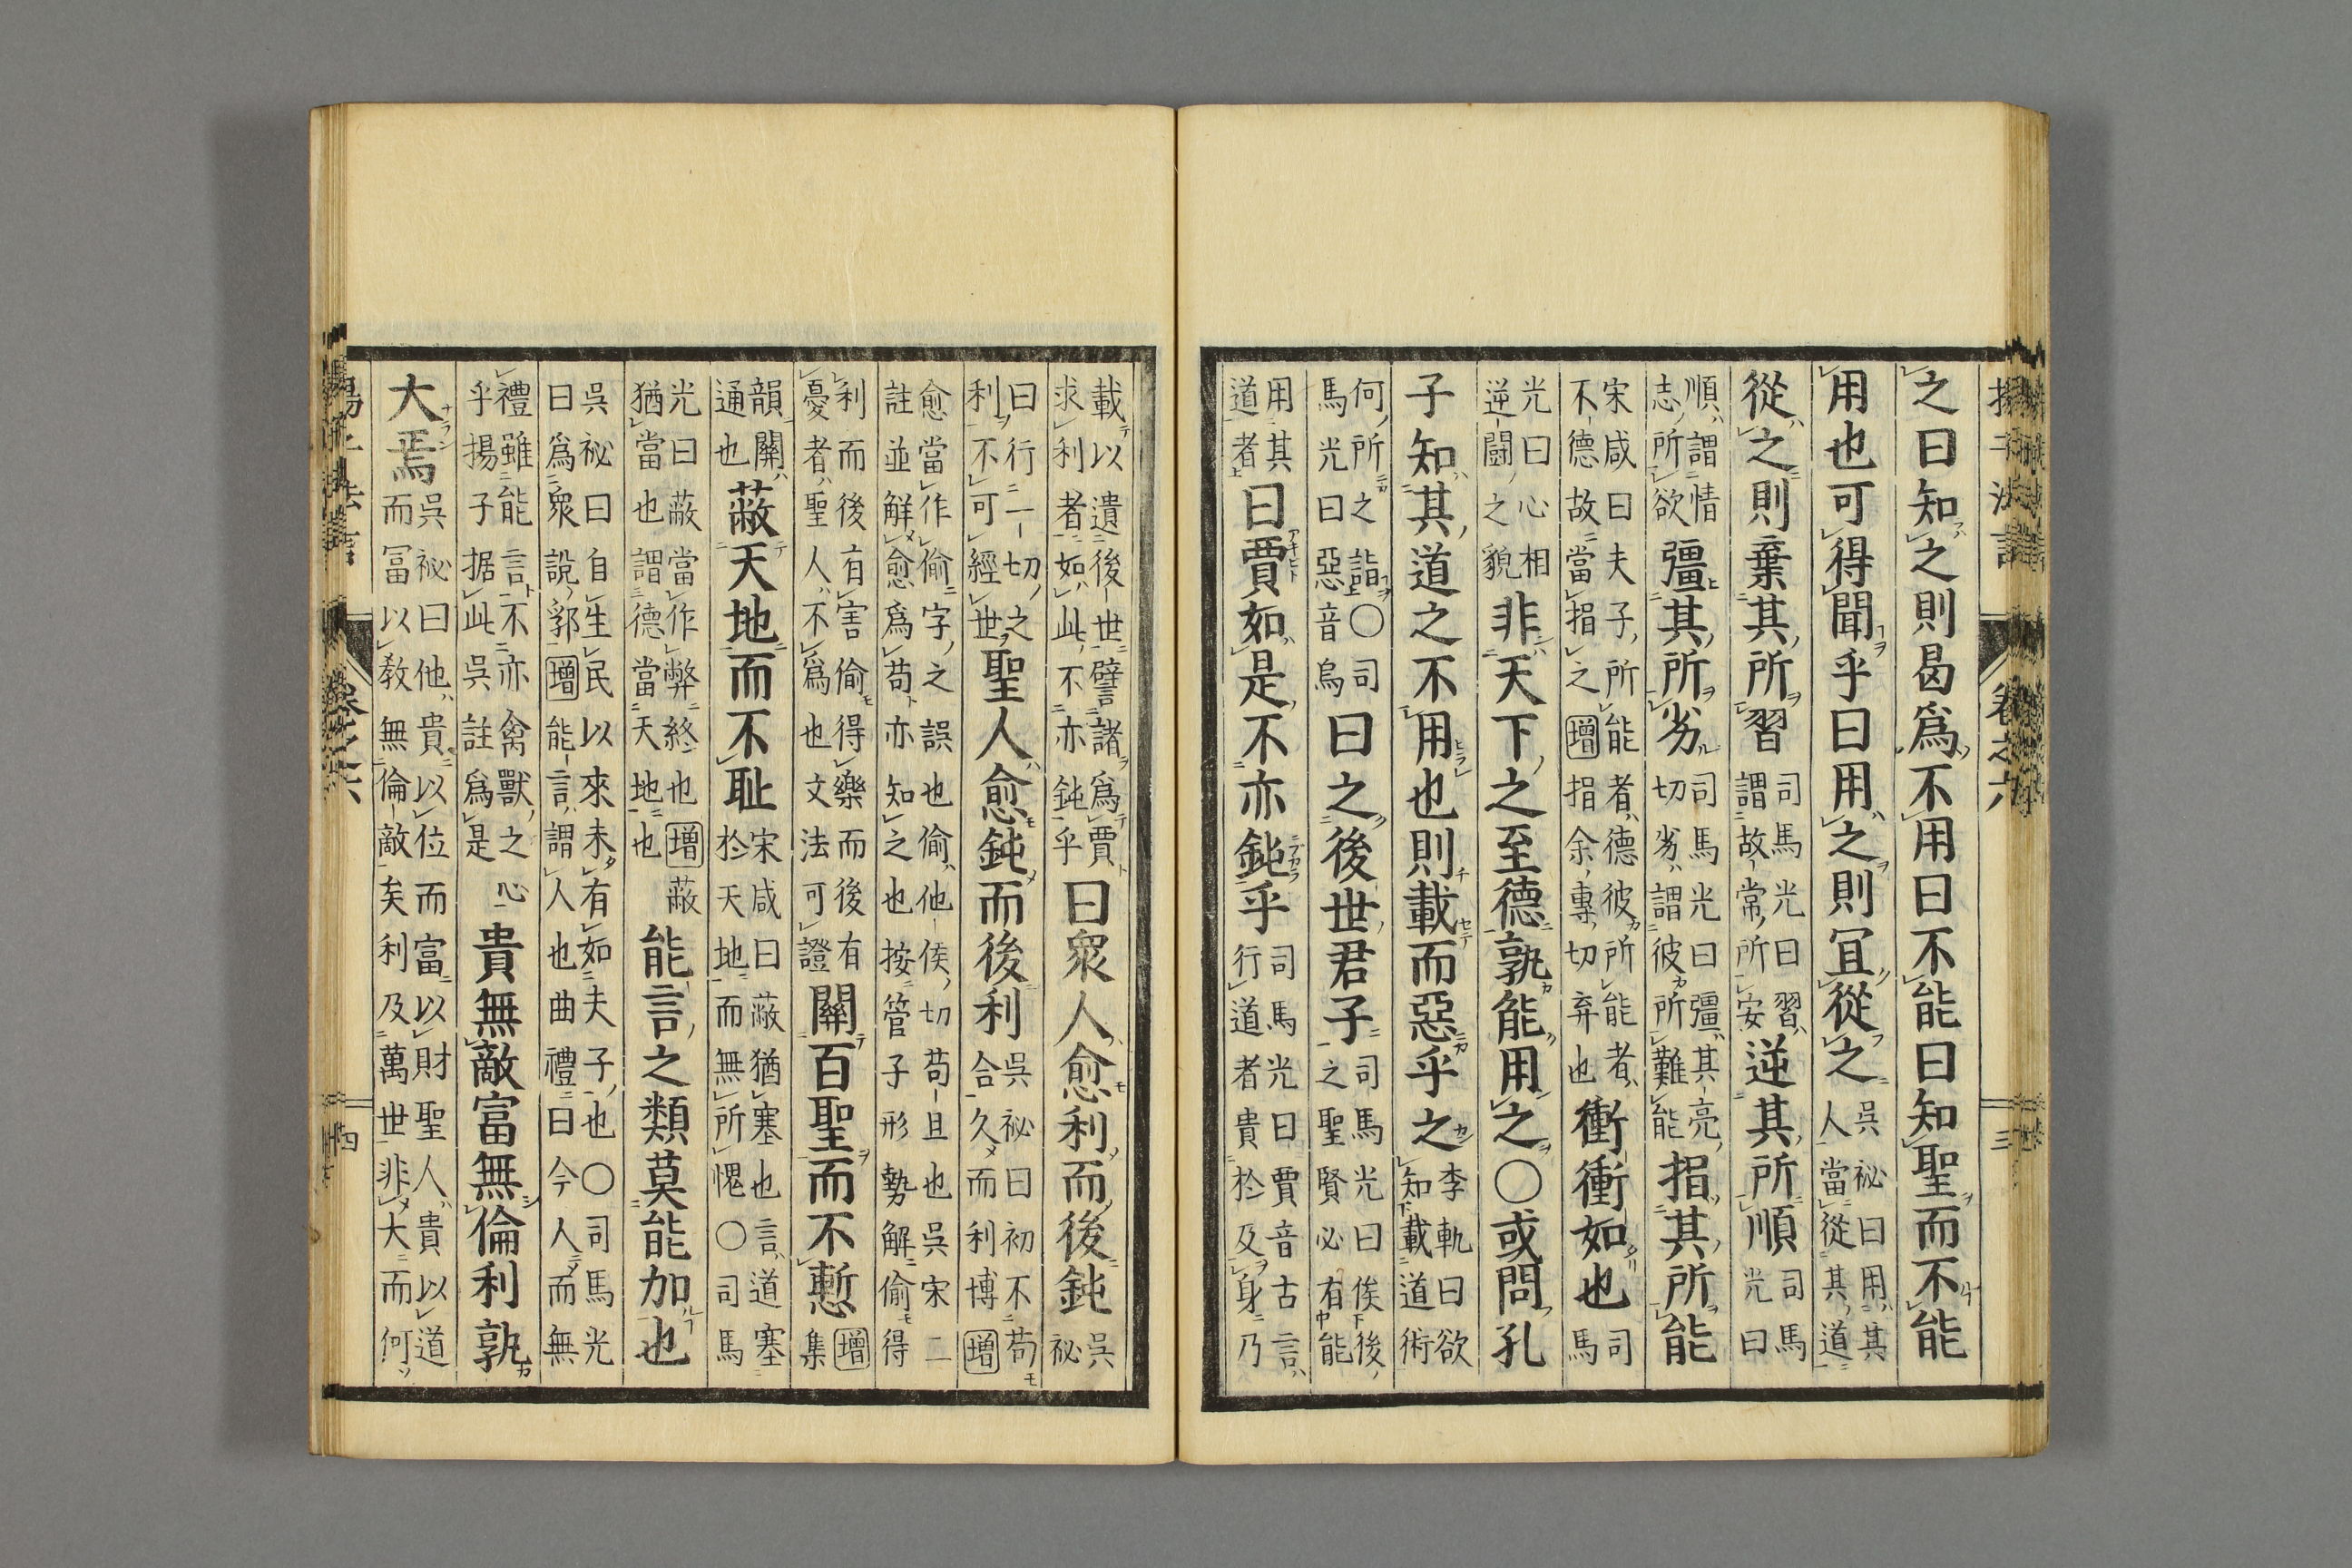 之曰知之則曷爲不用曰不能曰知聖而不能
用也可得聞乎曰用之則宜從之吳祕曰用其人當從其道
從之則棄其所習司馬光曰習謂故常所安逆其所順司馬光曰
順謂情志所欲彊其所劣司馬光曰彊其亮切劣謂彼所難能捐其所能
宋咸曰夫子所能者德彼所能者不德故當捐之增捐余專切弃也衝衝如也司馬
光曰心相逆鬭之貌非天下之至德孰能用之○或問孔
子知其道之不用也則載而惡乎之李軌曰欲知載道術
何所之詣○司馬光曰惡音烏曰之後世君子司馬光曰俟後之聖賢必有能
用其道者曰賈如是不亦鈍乎司馬光曰賈音古言行道者貴於及身乃
載以遺後世譬諸爲賈求利者如此不亦鈍乎曰衆人愈利而後鈍吳祕
曰行一切之利不可經世聖人愈鈍而後利吳祕曰初不苟合久而利博增
愈當作偷字之誤也偷他侯切苟且也吳宋二註並解愈爲苟亦知之也按管子形勢解偷得
利而後有害偷得樂而後有憂者聖人不爲也文法可證關百聖而不慙增集
韻關通也蔽天地而不耻宋咸曰蔽猶塞也言道塞於天地而無所愧○司馬
光曰蔽當作弊終也猶當也謂德當天地也增蔽能言之類莫能加也
吳祕曰自生民以來未有如夫子也○司馬光曰爲衆說郛增能言謂人也曲禮曰今人而無
禮雖能言不亦禽獸之心乎揚子据此吳註爲是貴無敵富無倫利孰
大焉吳祕曰他貴以位而富以財聖人貴以道而冨以教無倫敵矣利及萬世非大而何
卷之六
三
四